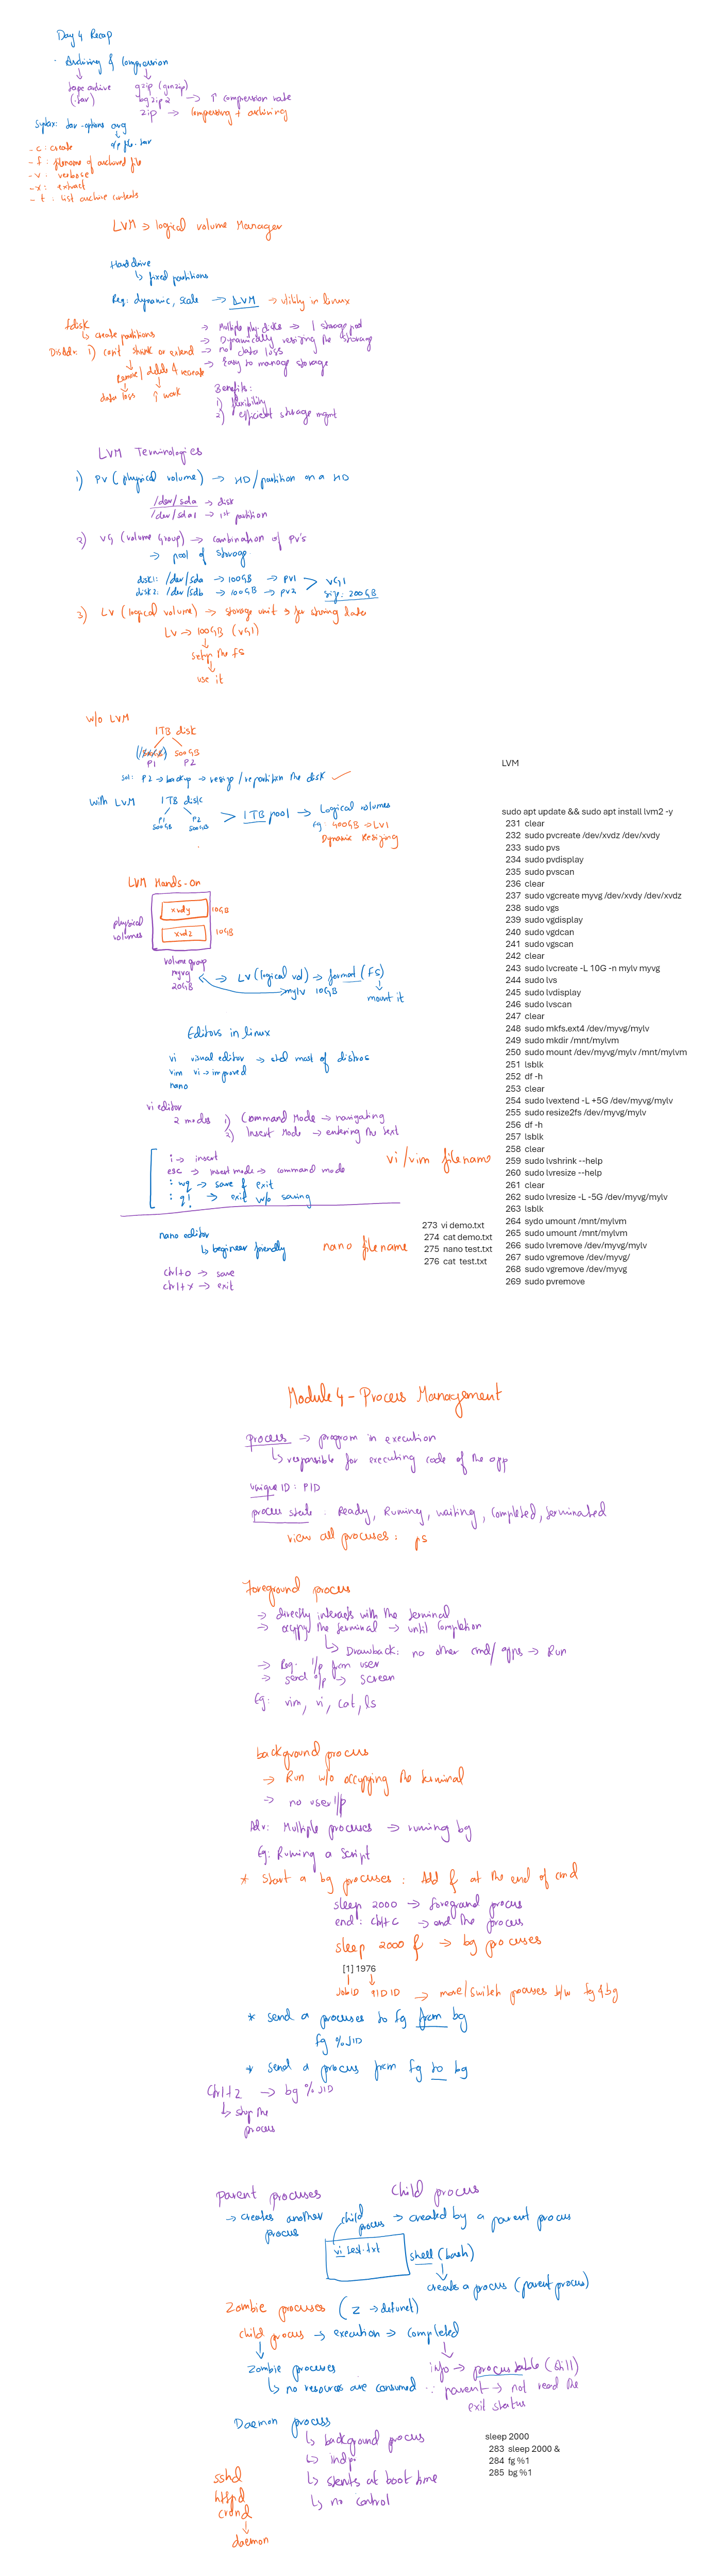 Day 4 Recap
Archiving & Compression
tape archive
(.tar)
gzip (gunzip)
bgzip2 → ↑ compression rate
zip → Compressing + archiving
Syntax: tar -options arg
o/p file.tar
-c : create
-f : filename of archived file
-v : verbose
-x : extract
-t : list archive contents
LVM → logical volume Manager
Hard drive
↳ fixed partitions
Req: dynamic, scale → LVM → utility in linux
fdisk
↳ create partitions
Disadv: 1) can't shrink or extend
Remove / delete & recreate
data loss ↑ work
→ Multiple phy. disks → 1 storage pool
→ Dynamically resizing the storage
→ no data loss
→ Easy to manage storage
Benefits:
1) flexibility
2) efficient storage mgmt
LVM Terminologies
1) PV (physical volume) → HD/partition on a HD
/dev/sda → disk
/dev/sda1 → 1st partition
2) VG (Volume Group) → combination of PV's
→ pool of storage
disk1: /dev/sda → 100GB → PV1
disk2: /dev/sdb → 100GB → PV2
> VG1
size: 200GB
3) LV (logical volume) → storage unit → for storing data
LV → 100GB (VG1)
↓
setup the FS
↓
use it
w/o LVM
1TB disk
500GB
P1 P2
Sol: P2 → backup → resize / repartition the disk ✓
With LVM 1TB disk
P1 P2
500GB 500GB
> 1TB pool → Logical volumes
Eg: 400GB → LV1
Dynamic Resizing
LVM Hands-on
physical volumes
xvdy 10GB
xvdz 10GB
volume group
myvg
20GB
→ LV (logical vol) → format (FS)
mylv 10GB
↓
mount it
LVM
sudo apt update && sudo apt install lvm2 -y
231 clear
232 sudo pvcreate /dev/xvdz /dev/xvdy
233 sudo pvs
234 sudo pvdisplay
235 sudo pvscan
236 clear
237 sudo vgcreate myvg /dev/xvdy /dev/xvdz
238 sudo vgs
239 sudo vgdisplay
240 sudo vgdcan
241 sudo vgscan
242 clear
243 sudo lvcreate -L 10G -n mylv myvg
244 sudo lvs
245 sudo lvdisplay
246 sudo lvscan
247 clear
248 sudo mkfs.ext4 /dev/myvg/mylv
249 sudo mkdir /mnt/mylvm
250 sudo mount /dev/myvg/mylv /mnt/mylvm
251 lsblk
252 df -h
253 clear
254 sudo lvextend -L +5G /dev/myvg/mylv
255 sudo resize2fs /dev/myvg/mylv
256 df -h
257 lsblk
258 clear
259 sudo lvshrink --help
260 sudo lvresize --help
261 clear
262 sudo lvresize -L -5G /dev/myvg/mylv
263 lsblk
264 sydo umount /mnt/mylvm
265 sudo umount /mnt/mylvm
266 sudo lvremove /dev/myvg/mylv
267 sudo vgremove /dev/myvg/
268 sudo vgremove /dev/myvg
269 sudo pvremove
Editors in linux
vi visual editor → std most of distros
vim vi → improved
nano
vi editor
2 modes 1) Command Mode → navigating
2) Insert Mode → entering the text
i → insert
esc → insert mode → command mode
: wq → save & exit
: q! → exit w/o saving
vi/vim filename
nano editor
↳ beginner friendly
nano filename
ctrl+o → save
ctrl+x → exit
273 vi demo.txt
274 cat demo.txt
275 nano test.txt
276 cat test.txt
Module 4 - Process Management
process → program in execution
↳ responsible for executing code of the app
unique ID : PID
process state : Ready, Running, waiting, Completed, terminated
view all processes : ps
Foreground process
→ directly interacts with the terminal
→ occupy the terminal → until completion
↳ Drawback: no other cmd/apps → Run
→ Req. i/p from user
→ send o/p → screen
Eg: vim, vi, cat, ls
background process
→ Run w/o occupying the terminal
→ no user i/p
Adv: Multiple processes → running bg
Eg: Running a Script
* Start a bg processes : Add & at the end of cmd
sleep 2000 → foreground process
end : ctrl+c → end the process
sleep 2000 & → bg processes
[1] 1976
JobID PID → move/switch processes b/w fg & bg
* send a processes to fg from bg
fg %JID
* send a process from fg to bg
Ctrl+z → bg %JID
↳ stop the process
Parent processes
→ creates another process
Child process
→ created by a parent process
child process
vi test.txt
shell (bash)
↓
creates a process (parent process)
Zombie processes (Z → defunct)
child process → execution → completed
Zombie processes
↳ no resources are consumed
info → process table (still)
∵ parent → not read the exit status
Daemon process
↳ background process
↳ indp.
↳ starts at boot time
↳ no control
sshd
httpd
crond
↓
daemon
sleep 2000
283 sleep 2000 &
284 fg %1
285 bg %1